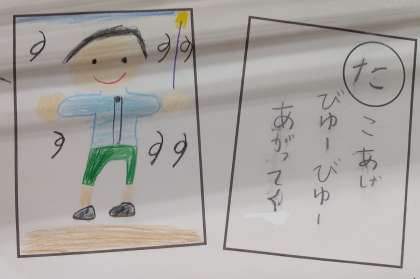 たこあげ
びゅーびゅー
あがってく